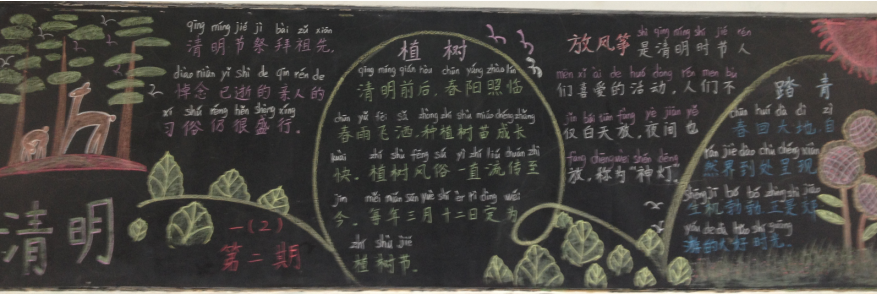 qīng míng jié jì bài zǔ xiān
清明节祭拜祖先,
dào niàn yǐ shì de qīn rén de
悼念已逝的亲人的
xí sú réng hěn shèng xíng
习俗仍很盛行。
清明
一(2)
第二期
植树
qīng míng qián hòu chūn yáng zhào lín
清明前后,春阳照临
chūn yǔ fēi sǎ zhòng zhí shù miáo chéng zhǎng
春雨飞洒,种植树苗成长
kuài zhí shù fēng sú yì zhí liú chuán zhì
快。植树风俗一直流传至
jīn měi nián sān yuè shí èr rì dìng wéi
今。每年三月十二日定为
zhí shù jié
植树节。
放风筝
shì qīng míng shí jié rén
是清明时节人
men xǐ ài de huó dòng rén men bù
们喜爱的活动,人们不
jǐn bái tiān fàng yè jiān yě
仅白天放,夜间也
fàng chēng wéi shén dēng
放,称为“神灯”。
踏青
chūn huí dà dì zì
春回大地,自
rán jiè dào chù chéng xiàn
然界到处呈现
shēng jī bó bó zhèng shì jiāo
生机勃勃,正是郊
yóu de dà hǎo shí guāng
游的大好时光。